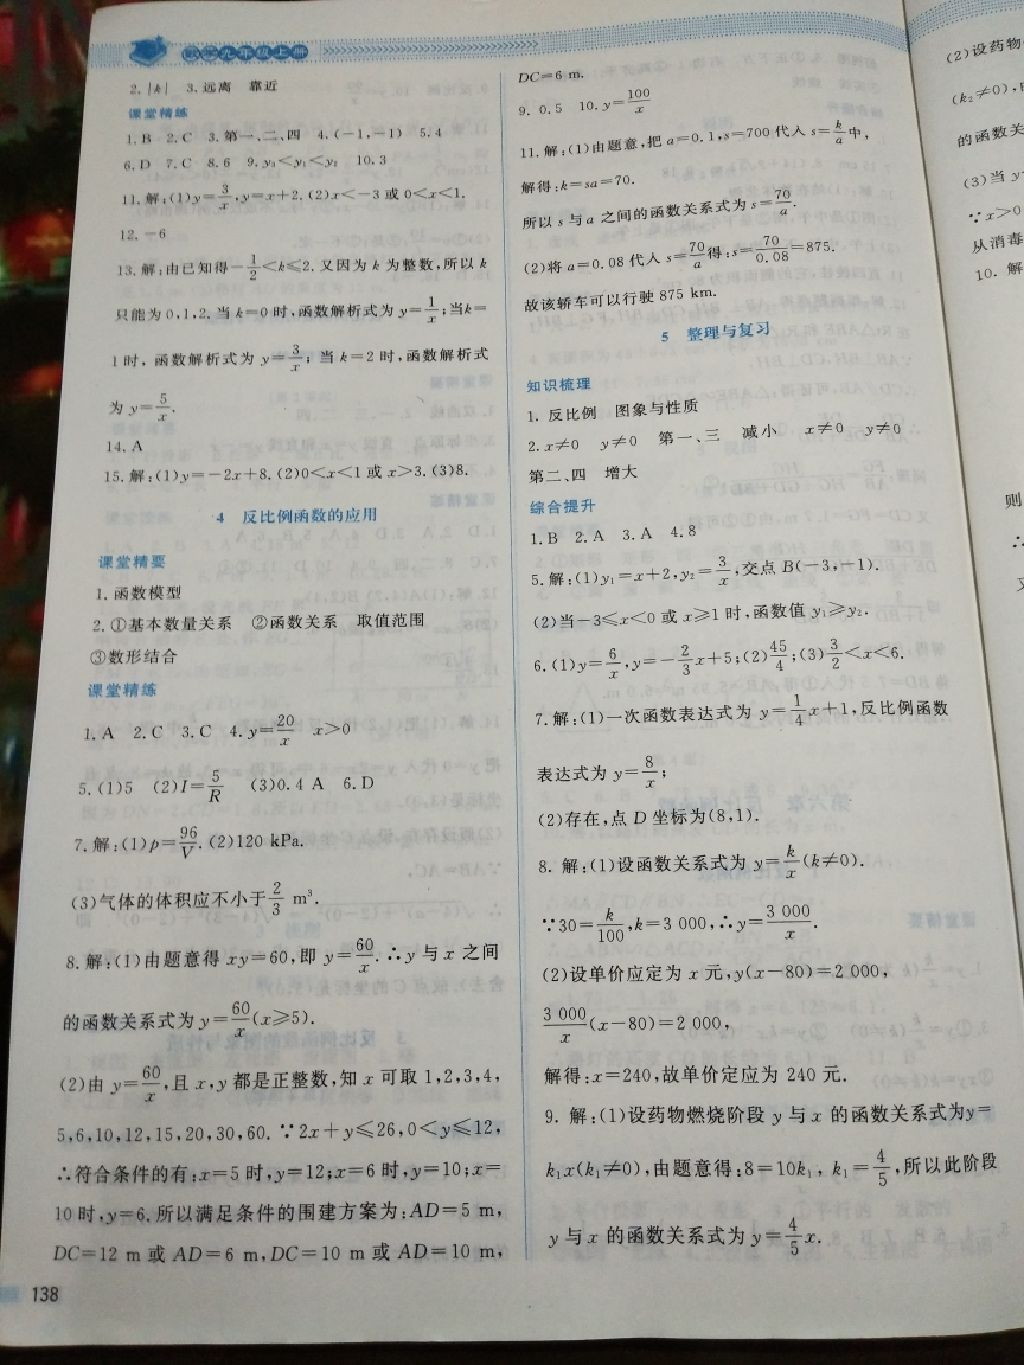 数学九年级上册
2. |k| 3. 远离 靠近
课堂精练
1. B 2. C 3. 第一、二、四 4. (-1,-1) 5. 4
6. D 7. C 8. 6 9. y₃<y₁<y₂ 10. 3
11. 解:(1)y=3/x,y=x+2. (2)x<-3或0<x<1.
12. -6
13. 解:由已知得-1/2<k≤2. 又因为k为整数,所以k
只能为0,1,2. 当k=0时,函数解析式为y=1/x;当k=
1时,函数解析式为y=3/x;当k=2时,函数解析式
为y=5/x.
14. A
15. 解:(1)y=-2x+8. (2)0<x<1或x>3. (3)8.
4 反比例函数的应用
课堂精要
1. 函数模型
2. ①基本数量关系 ②函数关系 取值范围
③数形结合
课堂精练
1. A 2. C 3. C 4. y=20/x x>0
5. (1)5 (2)I=5/R (3)0.4 A 6. D
7. 解:(1)p=96/V. (2)120 kPa.
(3)气体的体积应不小于2/3 m³.
8. 解:(1)由题意得xy=60,即y=60/x. ∴y与x之间
的函数关系式为y=60/x(x≥5).
(2)由y=60/x,且x,y都是正整数,知x可取1,2,3,4,
5,6,10,12,15,20,30,60. ∵2x+y≤26,0<y≤12,
∴符合条件的有:x=5时,y=12;x=6时,y=10;x=
10时,y=6. 所以满足条件的围建方案为:AD=5 m,
DC=12 m或AD=6 m,DC=10 m或AD=10 m,
138
DC=6 m.
9. 0.5 10. y=100/x
11. 解:(1)由题意,把a=0.1,s=700代入s=k/a中,
解得:k=sa=70.
所以s与a之间的函数关系式为s=70/a.
(2)将a=0.08代入s=70/a得:s=70/0.08=875.
故该轿车可以行驶875 km.
5 整理与复习
知识梳理
1. 反比例 图象与性质
2. x≠0 y≠0 第一、三 减小 x≠0 y≠0
第二、四 增大
综合提升
1. B 2. A 3. A 4. 8
5. 解:(1)y₁=x+2,y₂=3/x,交点B(-3,-1).
(2)当-3≤x<0或x≥1时,函数值y₁≥y₂.
6. (1)y=6/x,y=-2/3x+5;(2)45/4;(3)3/2<x<6.
7. 解:(1)一次函数表达式为y=1/4x+1,反比例函数
表达式为y=8/x;
(2)存在,点D坐标为(8,1).
8. 解:(1)设函数关系式为y=k/x(k≠0).
∵30=k/100,k=3 000,∴y=3 000/x.
(2)设单价应定为x元,y(x-80)=2 000,
3 000/x(x-80)=2 000,
解得:x=240,故单价定应为240元.
9. 解:(1)设药物燃烧阶段y与x的函数关系式为y=
k₁x(k₁≠0),由题意得:8=10k₁,k₁=4/5,所以此阶段
y与x的函数关系式为y=4/5x.
(2)设药物
(k₂≠0),
的函数关
(3)当y
∵x>0
从消毒
10. 解
则
∴